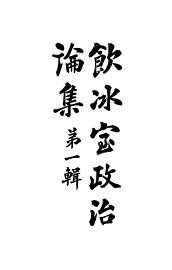 飲冰室政治
論集
第一輯